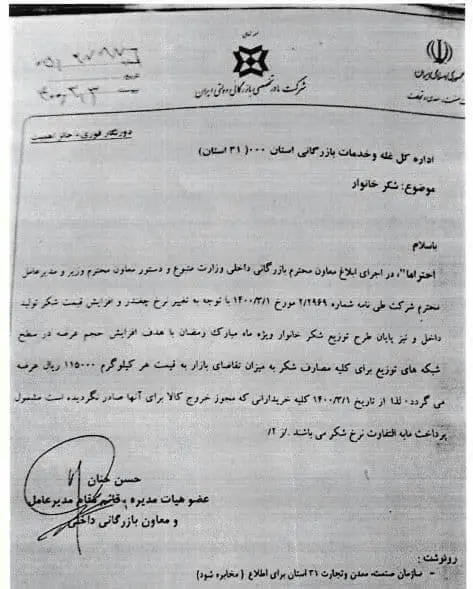 شرکت مادر تخصصی بازرگانی دولتی ایران
دورنگار فوری - حائز اهمیت
اداره کل غله و خدمات بازرگانی استان ۰۰۰ ( ۳۱ استان)
موضوع: شکر خانوار
باسلام
احتراما"، در اجرای ابلاغ معاون محترم بازرگانی داخلی وزارت متبوع و دستور معاون محترم وزیر و مدیرعامل
محترم شرکت طی نامه شماره ۲/۲۹۶۹ مورخ ۱۴۰۰/۳/۱ با توجه به تغییر نرخ چغندر و افزایش قیمت شکر تولید
داخل و نیز پایان طرح توزیع شکر خانوار ویژه ماه مبارک رمضان با هدف افزایش حجم عرضه در سطح
شبکه های توزیع برای کلیه مصارف شکر به میزان تقاضای بازار به قیمت هر کیلوگرم ۱۱۵۰۰۰ ریال عرضه
می گردد، لذا از تاریخ ۱۴۰۰/۳/۱ کلیه خریدارانی که مجوز خروج کالا برای آنها صادر نگردیده است مشمول
پرداخت مابه التفاوت نرخ شکر می باشند ./ز ۲/
حسن حنان
عضو هیات مدیره ، قائم مقام مدیرعامل
و معاون بازرگانی داخلی
رونوشت :
- سازمان صنعت، معدن وتجارت ۳۱ استان برای اطلاع ( مخابره شود)